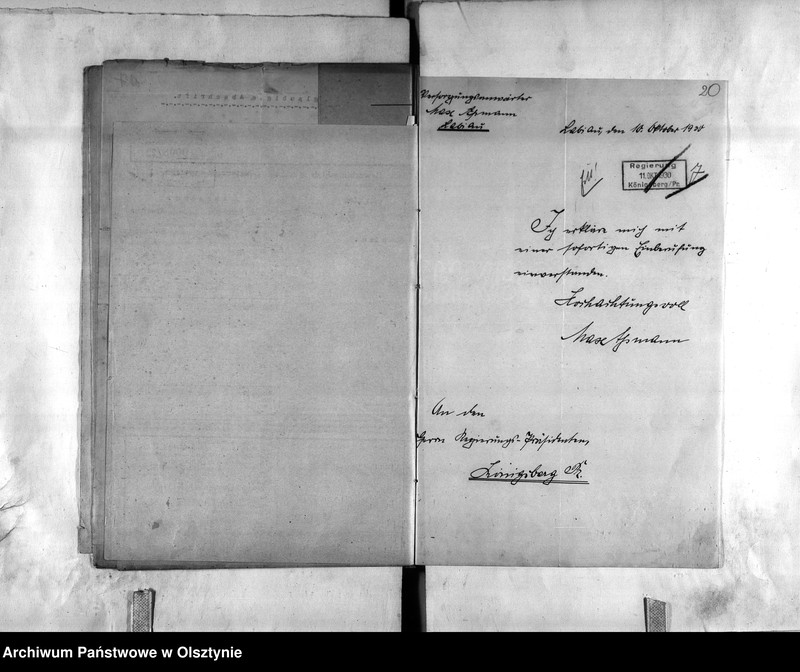 20
Versorgungsanwärter
Max
Labiau
Labiau, den 10. Oktober 1930
Regierung
11.OKT.1930
Königsberg/Pr.
Ich erkläre mich mit
einer sofortigen Einberufung
einverstanden.
Hochachtungsvoll
Max
An den
Herrn Regierungs-Präsidenten,
Königsberg Pr.
Archiwum Państwowe w Olsztynie